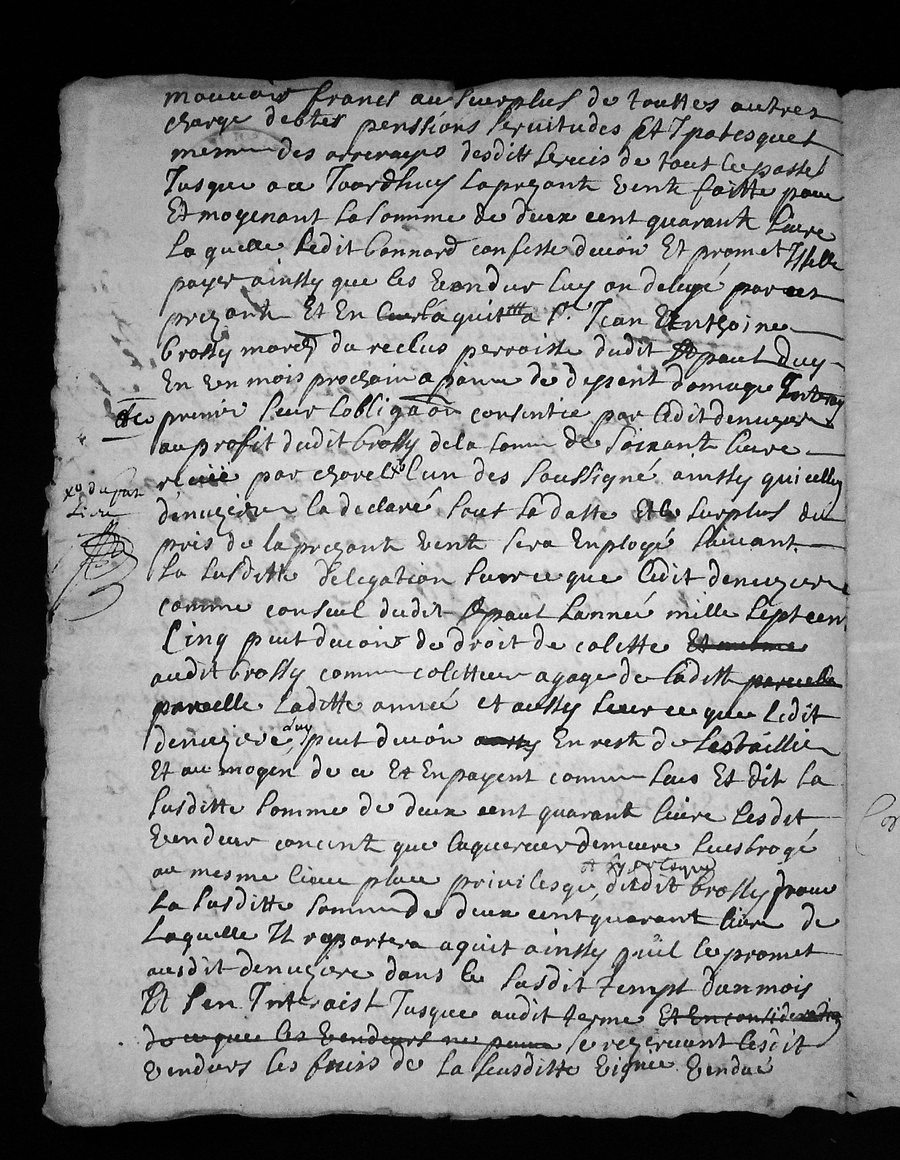 mouvoir francs au surplus de touttes autres
charge debtes penssions servitudes Et Ipotesques
mesme des arreraps desditt servis de tout le passé
Jusque a ce Jourdhuy la prezante vente faitte pour
Et moyenant la somme de deux cent quarante livre
la quelle ledit bonnard confesse devoir Et promet Icelle
payer ainssy que les vendur luy on delegé par ces
prezante Et En a quit a Sr. Jean Enthoine
brossy march du reclus perroisse dudit St paul d'uy
En un mois prochain a paine de depent domage Interay
premier sur lobligaon consentie par ledit denuziere
au profit dudit brossy de la som de soixante livre
par charel xo lun des soussigné ainssy qui celluy
xo dupar
denuziere la declaré sout sa datte Et le surplus du
pris de la prezante vente sera Employé suivant
la susditte delegation sur ce que ledit denuziere
comme conseul dudit St paul lanneé mille sept cent
Cinq peut devoir de droit de colette Et mesme
audit brossy comme coletteur a gage de laditte parcelle
parcelle laditte anneé et aussy sur ce que ledit
denuziere luy peut devoir aussy En reste de ses taillie
Et au moyen de ce Et En payent comme sus Et dit la
susditte somme de deux cent quarante livre lesdit
vendeur consent que laquereur demeure subrogé
au mesme lieux place privilesge Et Ypotesque dudit brossy pour
la susditte somme de deux cent quarante livre de
laquelle Il raportera aquit ainssy quil le promet
ausdit denuziere dans le susdit tempt dun mois
Et sen Interaist Jusque audit terme Et En consideration
de ce que les vendeurs ne se rezervant lesdit
vendurs les fruis de la susditte vignee vendue